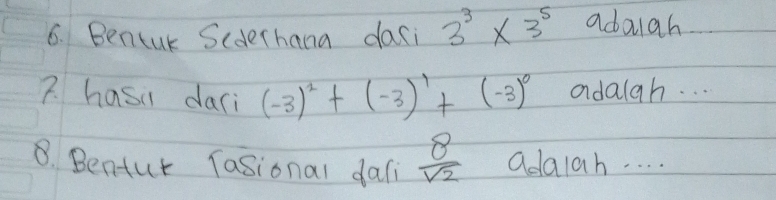 6. Bentuk Sederhana dari 3³ × 3⁵ adalah....
7. hasil dari (-3)² + (-3)¹ + (-3)⁰ adalah ...
8. Bentuk rasional dari 8/√2 adalah ....